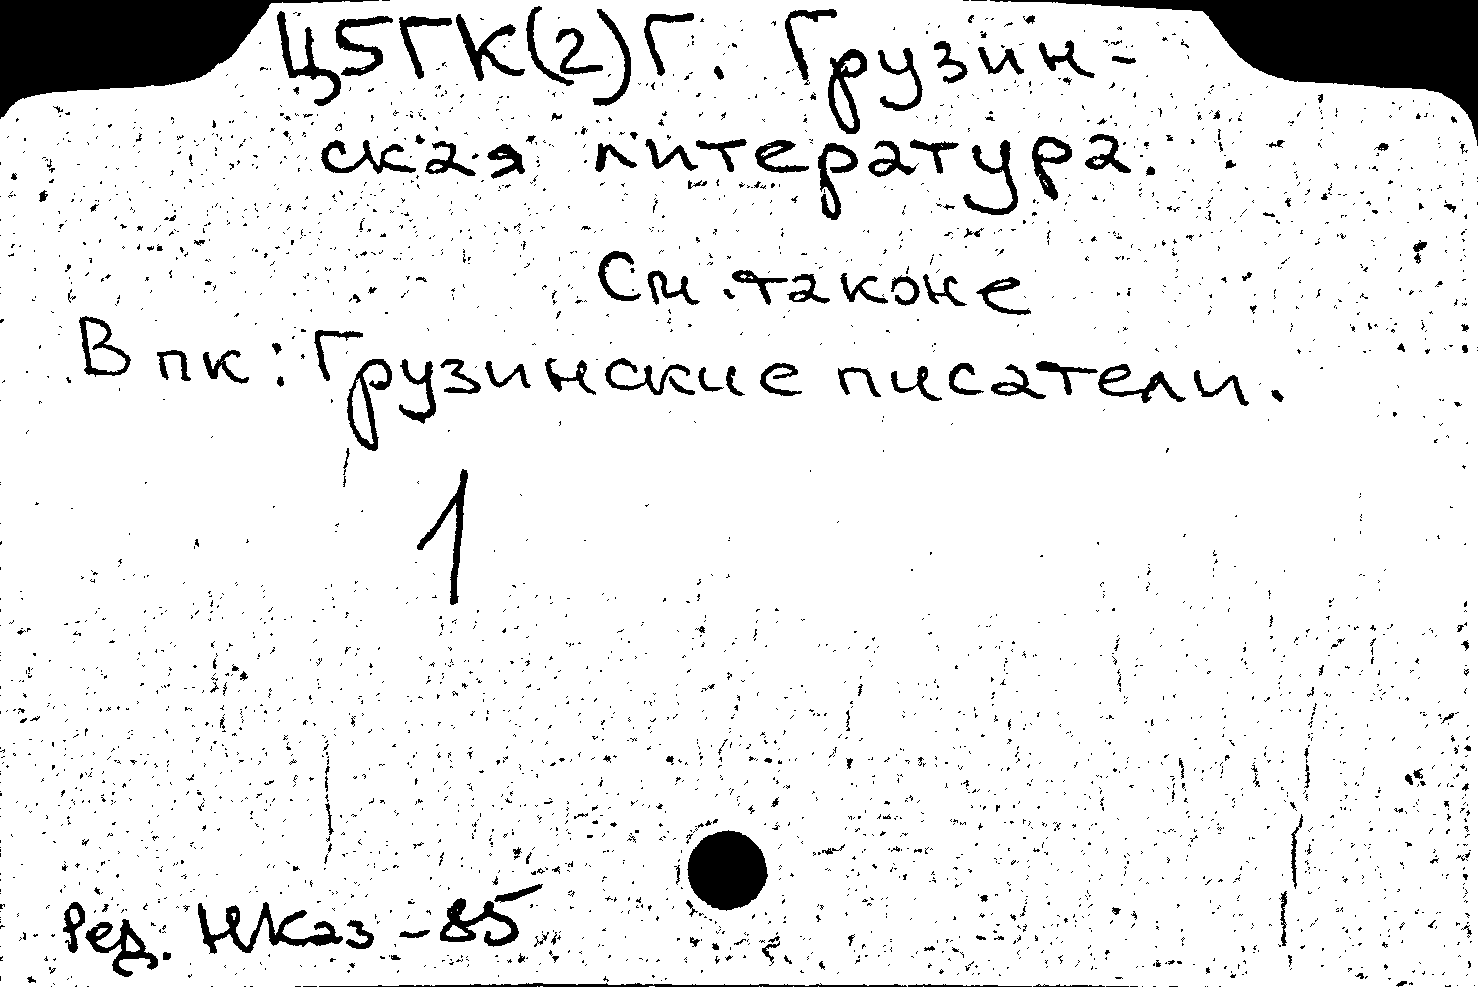 Ц5ГК(2)Г. Грузин-
ская литература.
См. также
В пк: Грузинские писатели.
1
Ред. НКаз - 85